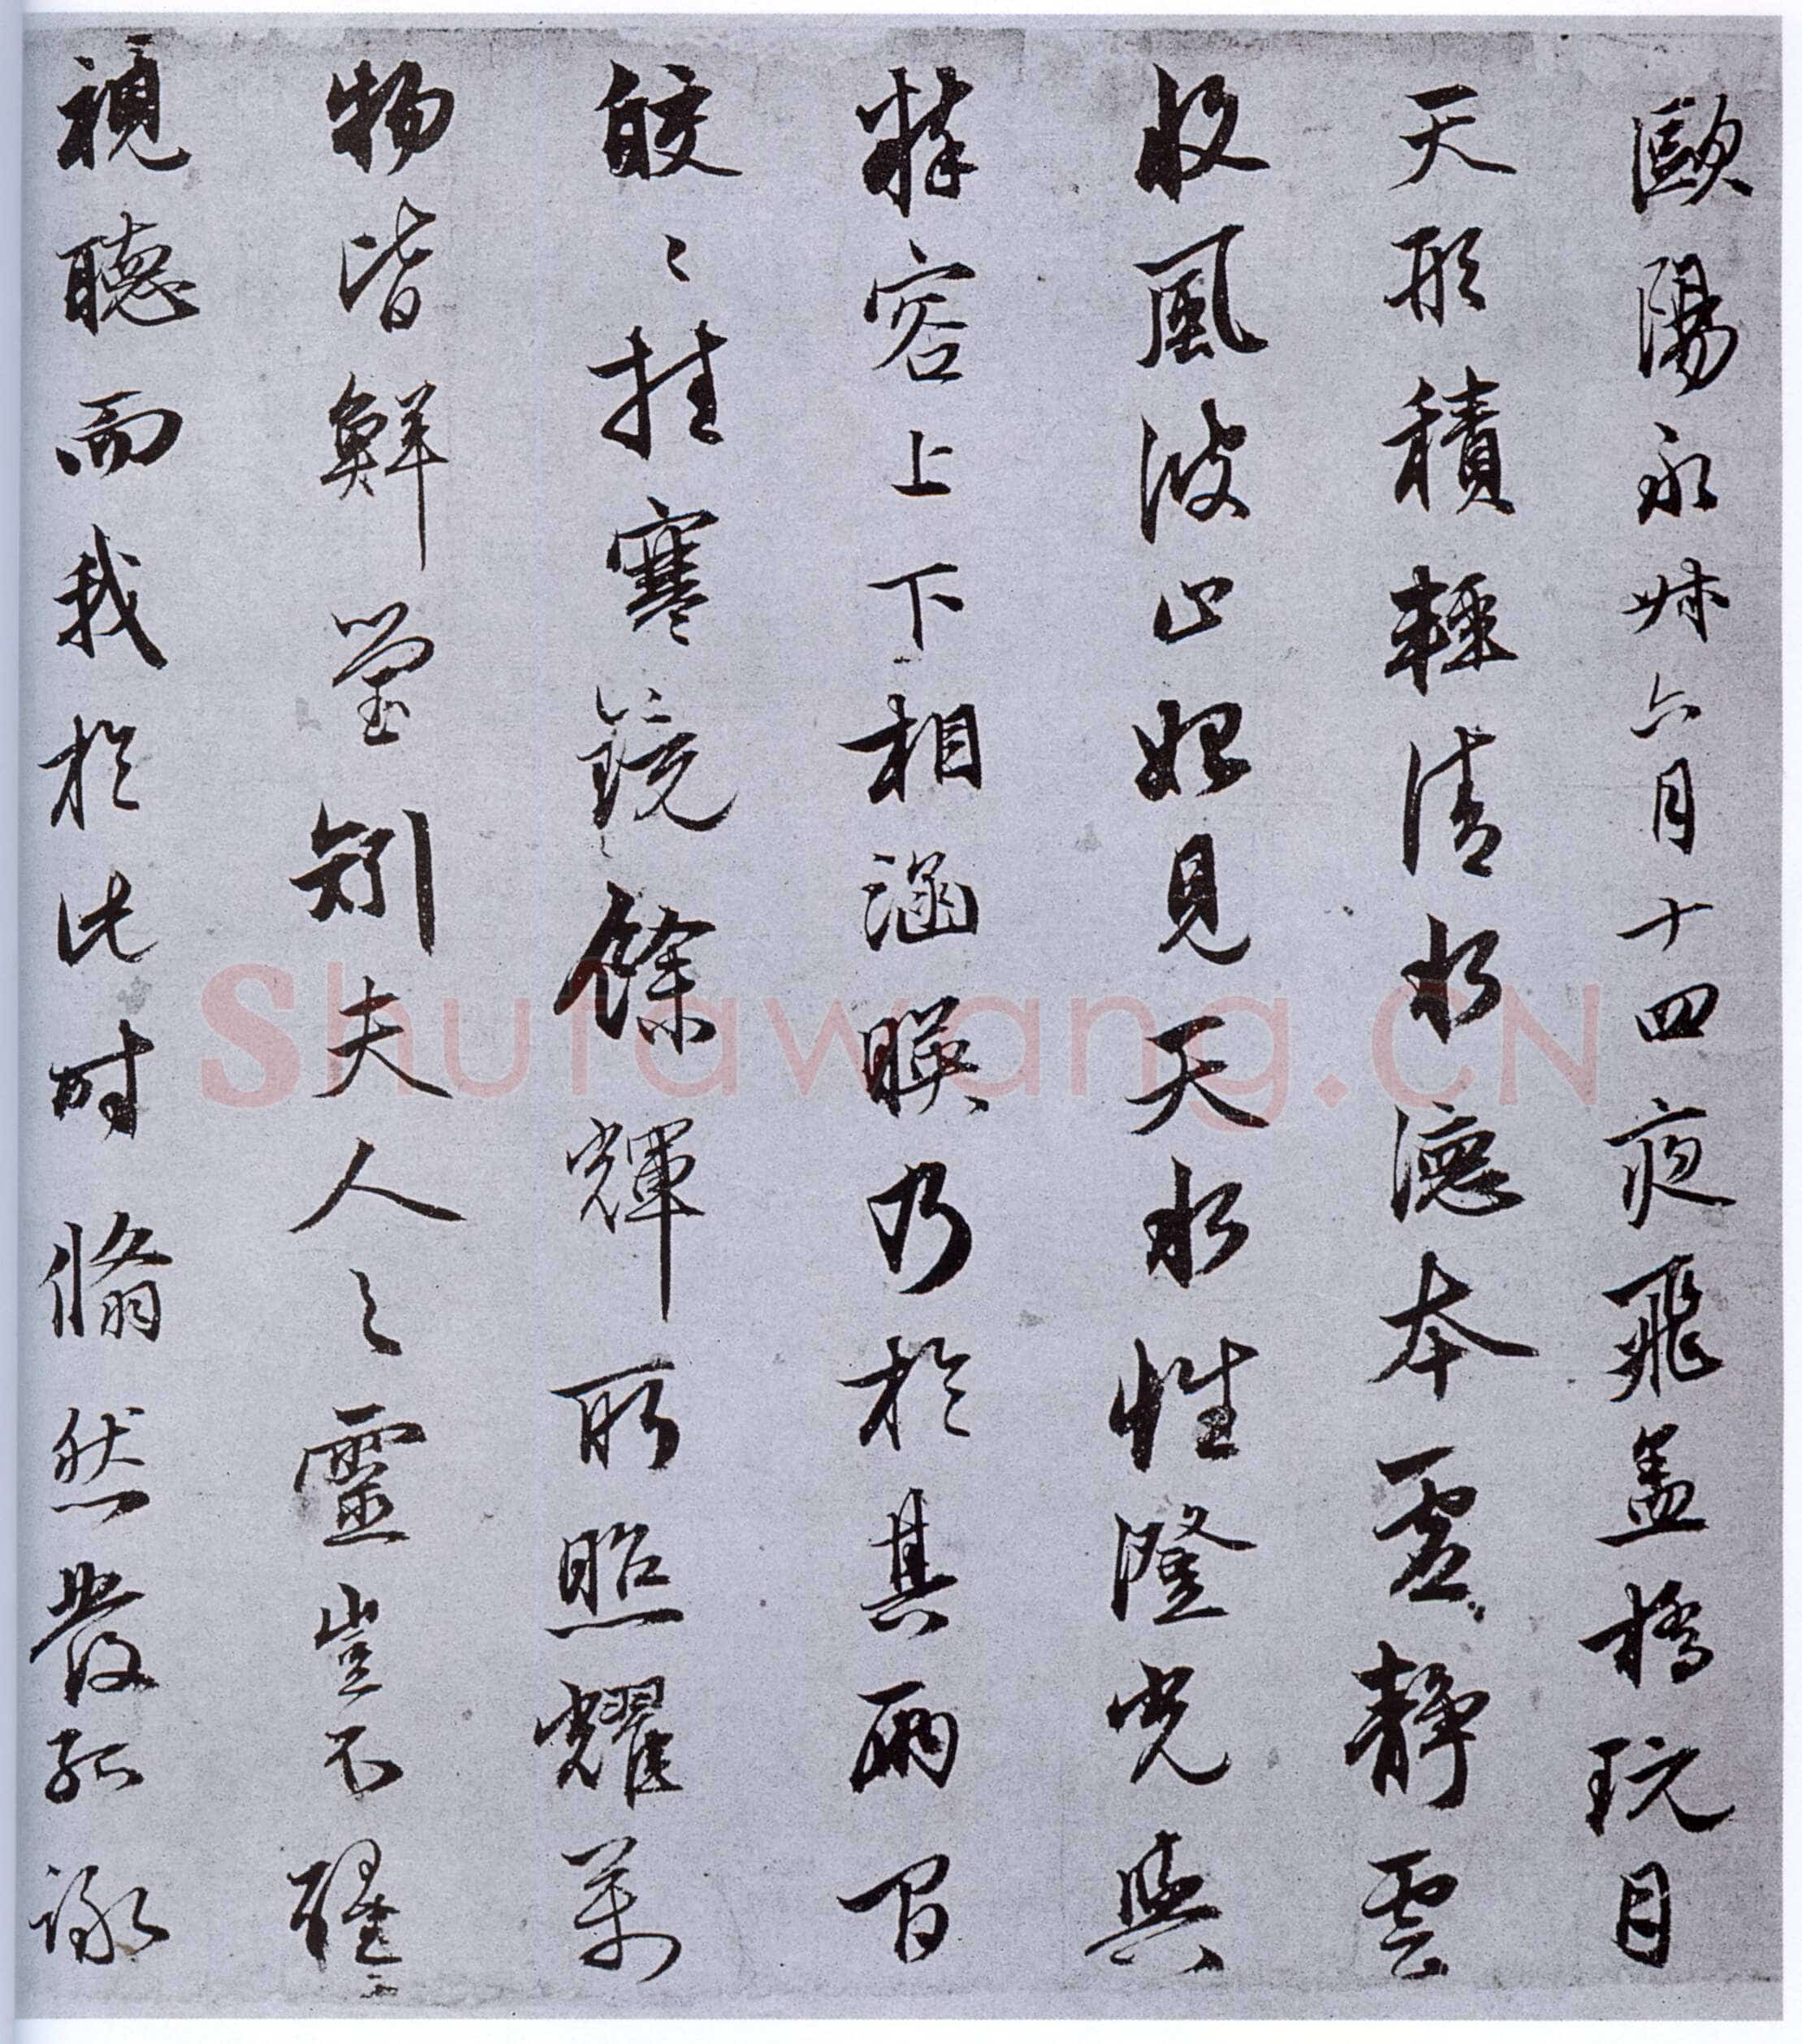 歐陽永叔六月十四夜飛盖橋玩月
天形積輕清水德本虛靜雲
收風波止始見天水性澄光與
粹容上下相涵暎乃於其兩間
皎〻挂寒鏡餘輝所照耀萬
物皆鮮瑩矧夫人之靈豈不醒
視聽而我於此時翛然發孤詠
Shufawang.CN